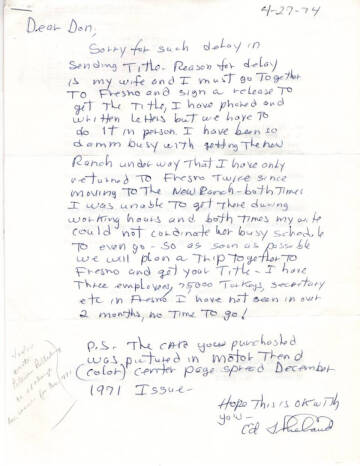 4-27-74
Dear Don,
Sorry for such delay in
sending Title - Reason for delay
is my wife and I must go Together
To Fresno and sign a release To
get the Title, I have phoned and
written letters but we have To
do it in person. I have been so
damm busy with getting The new
Ranch underway That I have only
returned to Fresno Twice since
moving To The New Ranch - both Times
I was unable To get There during
working hours and both times my wife
could not cordinate her busy schedule
To even go - So as soon as possible
we will plan a Trip Together to
Fresno and get your Title - I have
Three employees, 75000 Turkeys, secretary
etc in Fresno I have not seen in over
2 months, no Time To go!
P.S. The car you purchased
was pictured in Motor Trend
(color) center page spread December
1971 Issue -
Hope This is OK with
you -
Ed